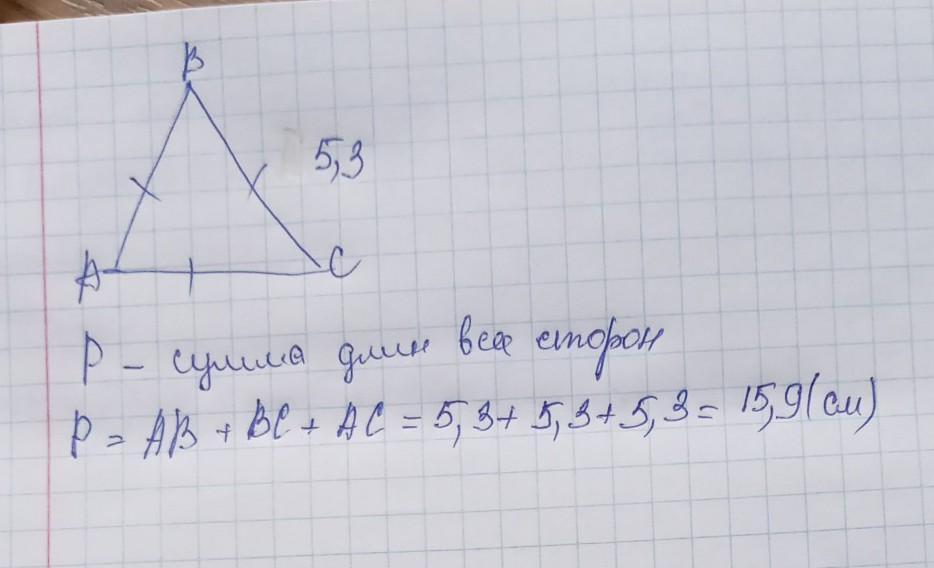 B
5,3
A C
P - сумма длин всех сторон
P = AB + BC + AC = 5,3 + 5,3 + 5,3 = 15,9 (см)